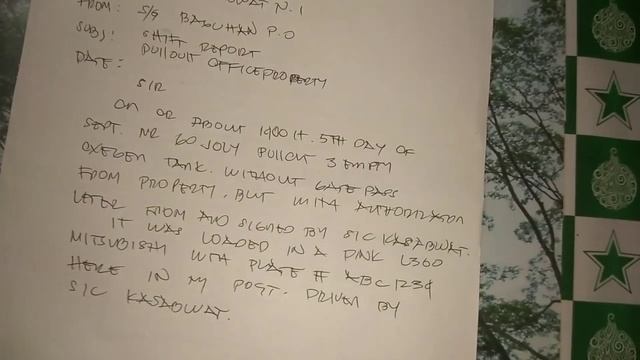 FROM: S/G BAGUHAN P.O
SUBJ: SHIFT REPORT
PULLOUT OFFICE PROPERTY
DATE:
SIR
ON OR ABOUT 1900 H. 5TH DAY OF
SEPT. MR GO JOLY PULLOUT 3 EMPTY
OXEGEN TANK. WITHOUT GATE PASS
FROM PROPERTY. BUT WITH AUTHORIZATION
LETER FROM AND SIGNED BY SIC KASABWAT.
IT WAS LOADED IN A PINK L360
MITSUBISHI WITH PLATE # ABC 1234
HERE IN MY POST. DRIVEN BY
SIC KASABWAT.